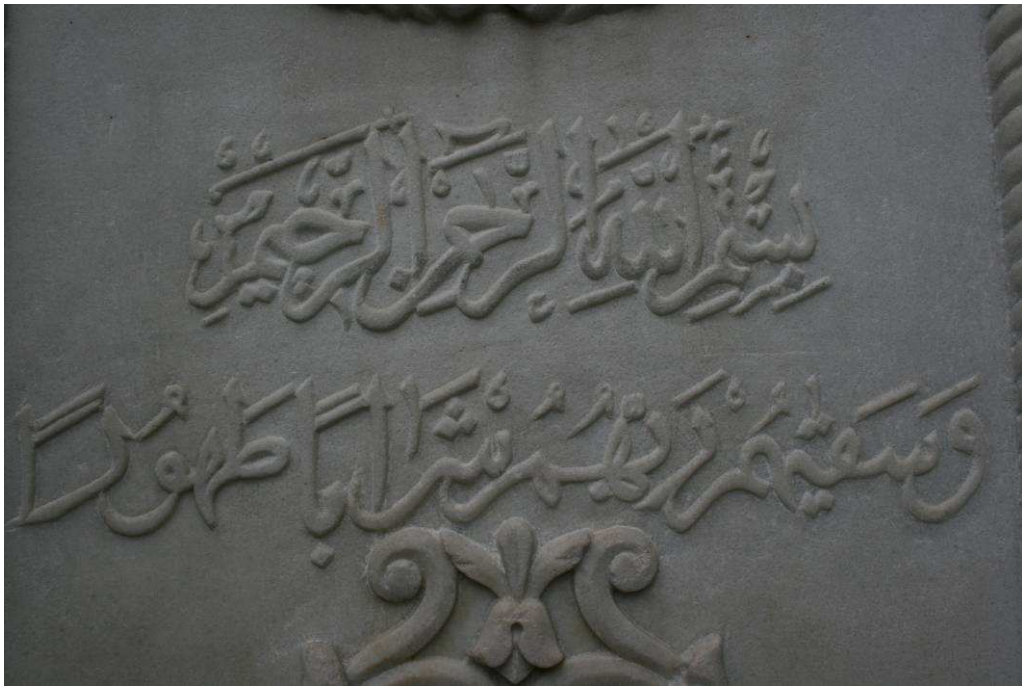 بِسْمِ اللّٰهِ الرَّحْمٰنِ الرَّحِيمِ
وَسَقٰيهُمْ رَبُّهُمْ شَرَابًا طَهُورًا